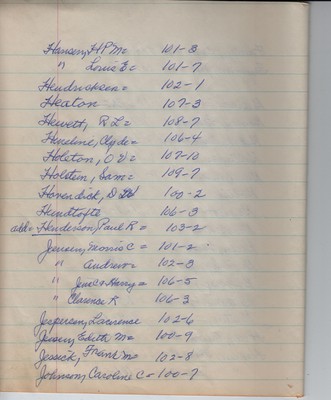 Hansen, H P M = 101-3
" Louie E = 101-7
Hendricksen = 102-1
Heaton 107-3
Hewett, R L = 108-7
Heneline, Clyde = 106-4
Holeton, O V = 107-10
Holstein, Sam = 109-7
Haverdick, D 100-2
Hemdtofte 106-3
add = Henderson, Paul R = 103-2
Jensen, Morris C = 101-2
" Andrew = 102-3
" Harry = 106-5
" Clarence R 106-3
Jespersen, Lawrence 102-6
Jensen, Edith M = 100-9
Jessick, Frank M = 102-8
Johnson, Caroline C = 100-7